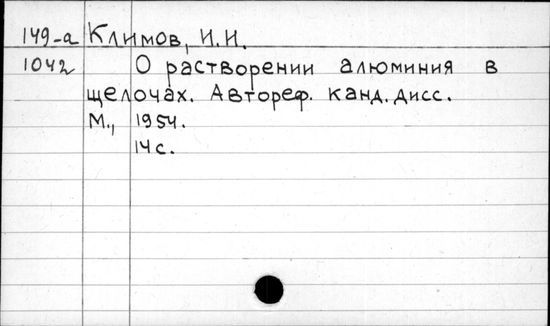 149-а Климов, И.И.
1042 О растворении алюминия в
щелочах. Автореф. канд. дисс.
М., 1954.
14 с.